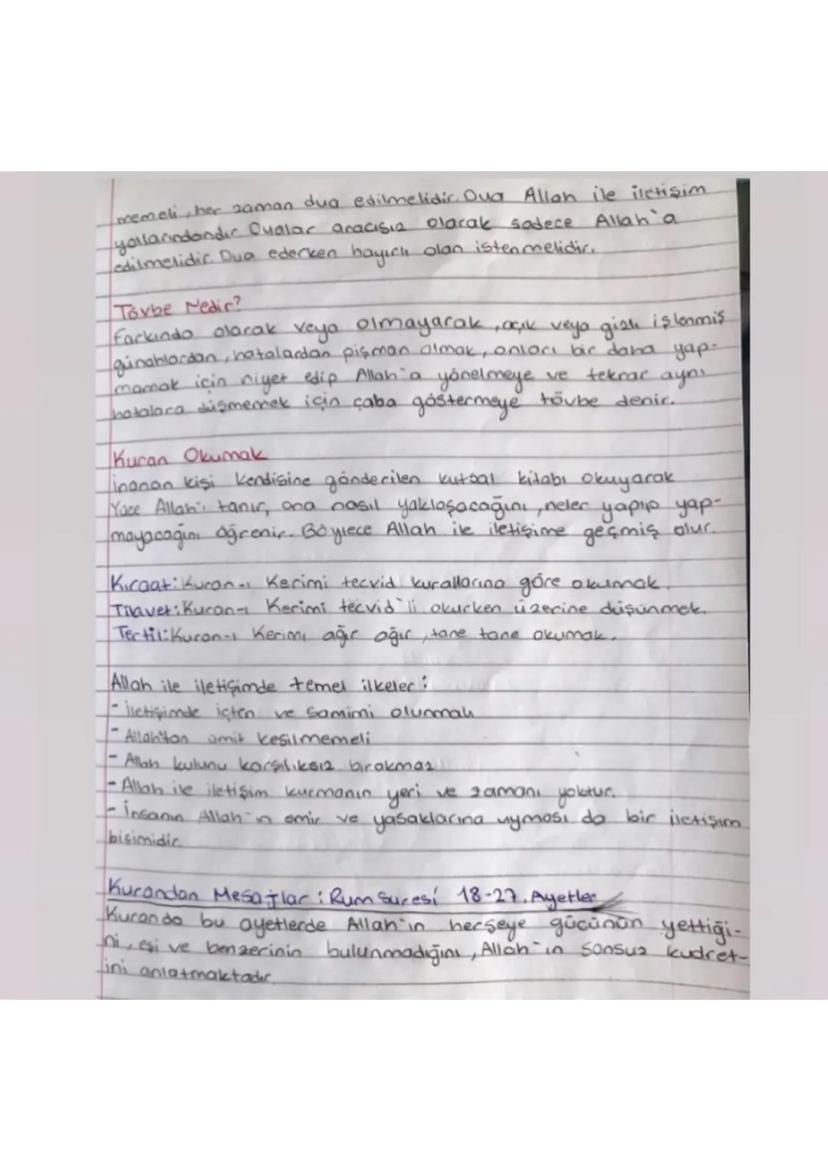 memeli, her zaman dua edilmelidir. Dua Allah ile iletişim
yollarındandır. Dualar aracısız olarak sadece Allah'a
edilmelidir. Dua ederken hayırlı olan istenmelidir.
Tövbe Nedir?
farkında olarak veya olmayarak, açık veya gizli işlenmiş
günahlardan, hatalardan pişman olmak, onları bir daha yap-
mamak için niyet edip Allah'a yönelmeye ve tekrar aynı
hatalara düşmemek için çaba göstermeye tövbe denir.
Kuran Okumak
İnanan kişi kendisine gönderilen kutsal kitabı okuyarak
Yüce Allah'ı tanır, ona nasıl yaklaşacağını, neler yapıp yap-
mayacağını öğrenir. Böylece Allah ile iletişime geçmiş olur.
Kıraat: Kuran-ı Kerimi tecvid kurallarına göre okumak.
Tilavet: Kuran-ı Kerimi tecvid'li okurken üzerine düşünmek.
Tertil: Kuran-ı Kerimi ağır ağır, tane tane okumak.
Allah ile iletişimde temel ilkeler:
- İletişimde içten ve samimi olunmalı
- Allah'tan ümit kesilmemeli
- Allah kulunu karşılıksız bırakmaz
- Allah ile iletişim kurmanın yeri ve zamanı yoktur.
- İnsanın Allah'ın emir ve yasaklarına uyması da bir iletişim
biçimidir.
Kurandan Mesajlar: Rum Suresi 18-27. Ayetler
Kuranda bu ayetlerde Allah'ın herşeye gücünün yettiği-
ni, eşi ve benzerinin bulunmadığını, Allah'ın sonsuz kudret-
ini anlatmaktadır.